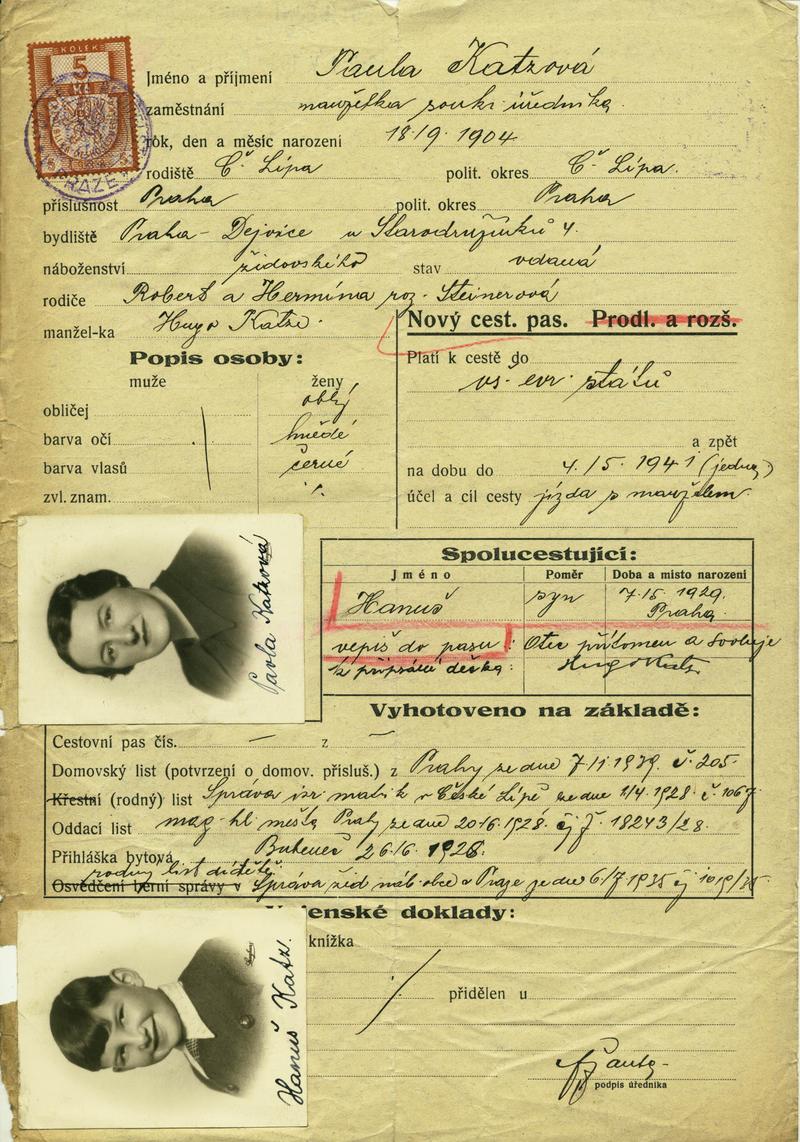 KOLEK
5
Kč
Jméno a příjmení Paula Katzová
zaměstnání manželka soukr. úředníka
rok, den a měsíc narození 18/9. 1904
rodiště Č. Lípa polit. okres Č. Lípa.
příslušnost Praha polit. okres Praha
bydliště Praha - Dejvice u Starodružiníků 4.
náboženství židovského stav vdaná
rodiče Robert a Hermína roz. Steinerová
manžel-ka Hugo Katz.
Nový cest. pas. Prodl. a rozš.
Popis osoby:
muže ženy
obličej oblý
barva očí hnědé
barva vlasů černé
zvl. znam.
Platí k cestě do
vš. evr. států
a zpět
na dobu do 4./5. 1941 (jedna)
účel a cíl cesty jízda s manželem
Spolucestující:
Jméno Poměr Doba a místo narození
Hanuš syn 7./5. 1929. Praha
vepiš do pasu: Otec přítomen a svoluje
k připsání děcka: Hugo Katz
Pavla Katzová
Vyhotoveno na základě:
Cestovní pas čís. — z —
Domovský list (potvrzení o domov. přísluš.) z Prahy ze dne 7./1. 1939. č. 205.
Křestní (rodný) list Správa isr. matrik v České Lípě ze dne 1/4. 1928. č. 1067
Oddací list mag. hl. města Prahy ze dne 20/6. 1928. čj. 18243/28.
Přihláška bytová Bubeneč 26/6. 1928.
rodný list dítěte
Osvědčení berní správy v Správa žid. náb. obce v Praze ze dne 6/7. 1935 čj. 1019/35
Vojenské doklady:
knížka
přidělen u
Hanuš Katz.
podpis úředníka